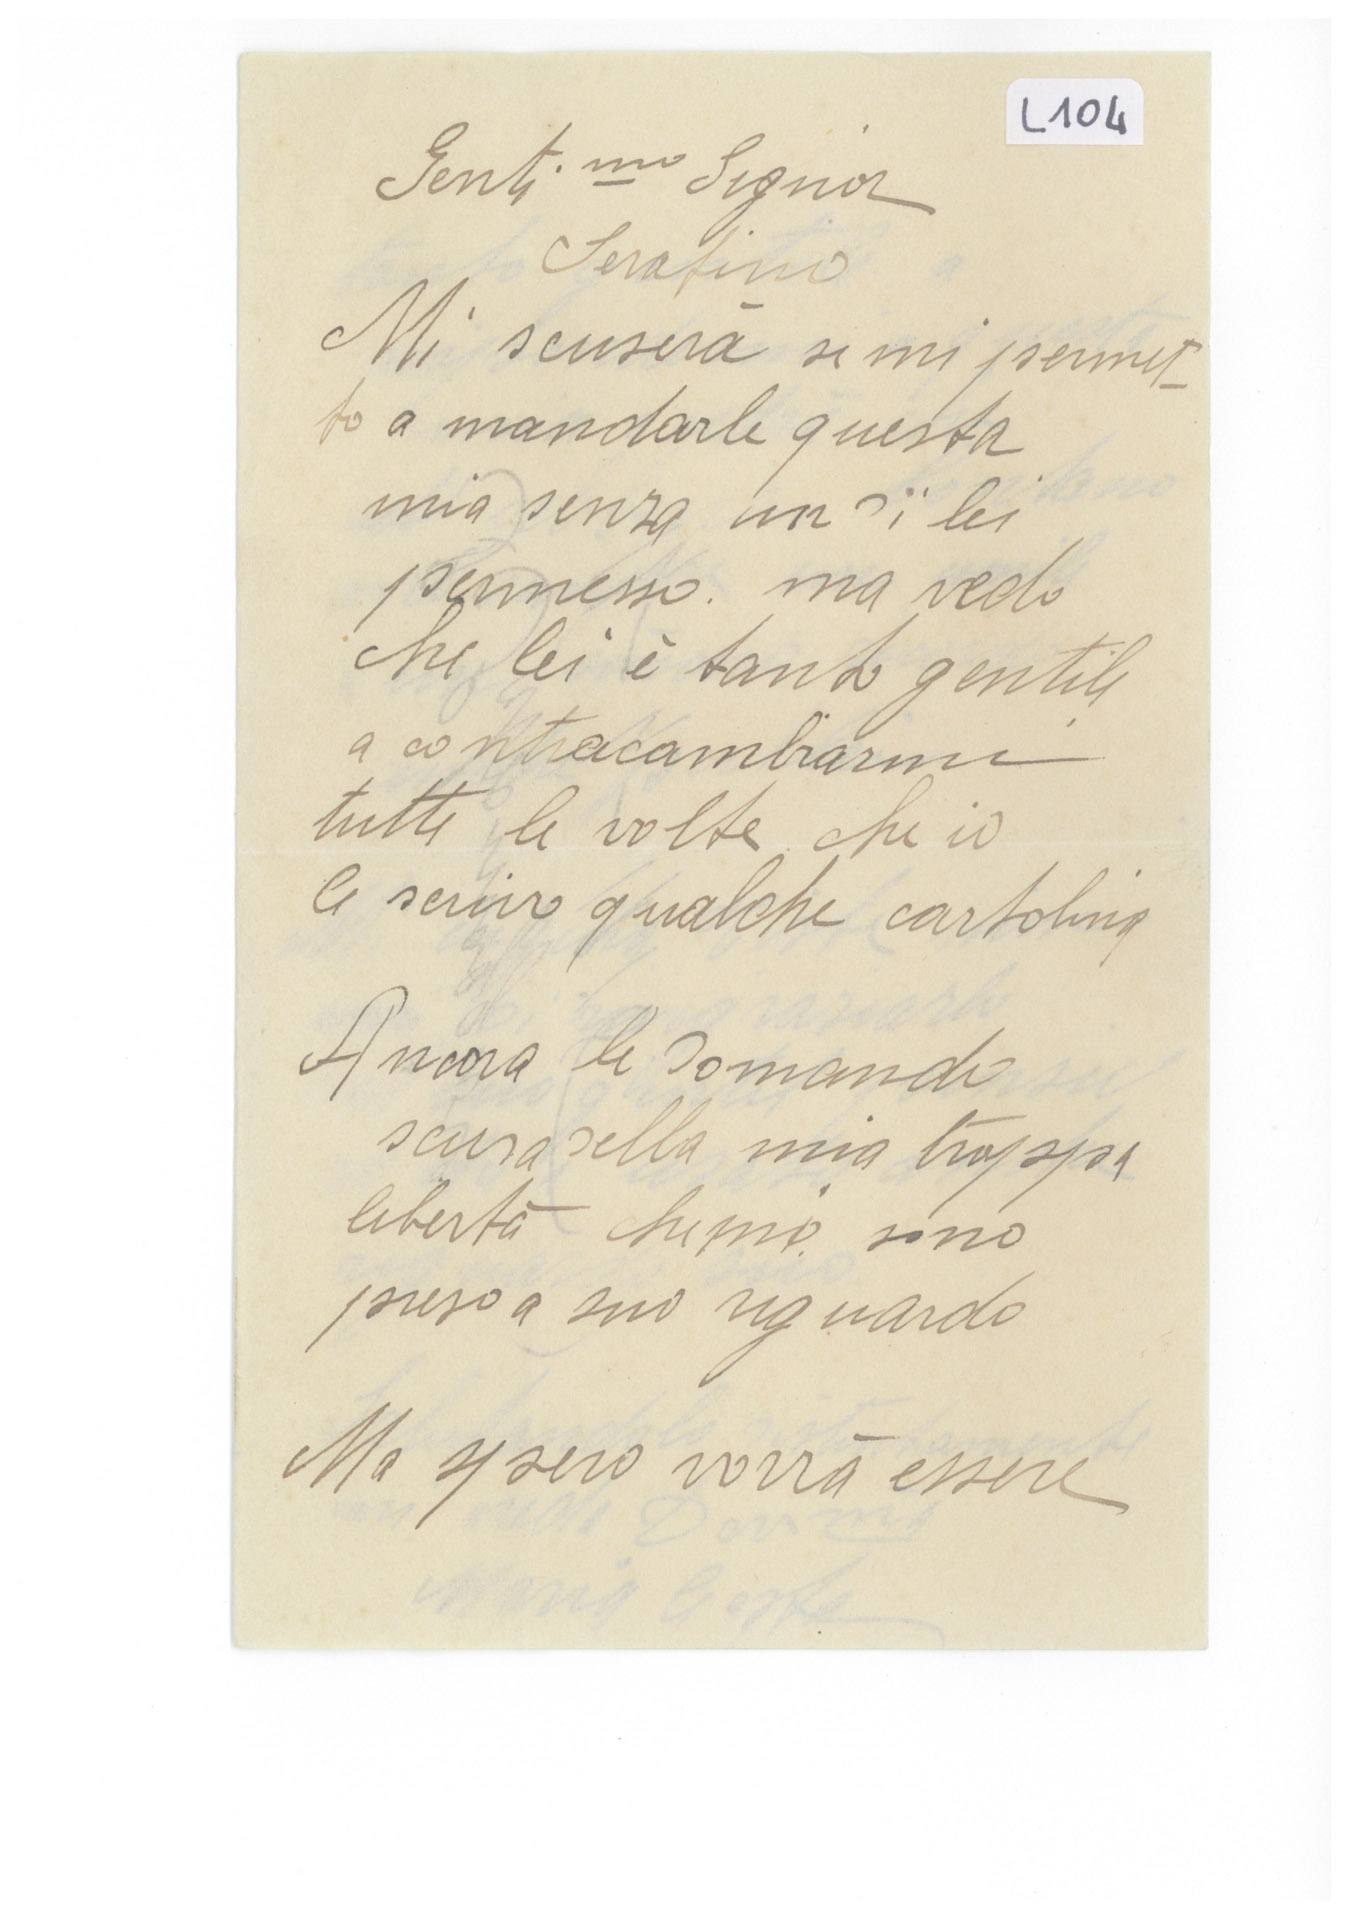 L104
Genti.mo Signor
Serafino
Mi scuserà se mi permet-
to a mandarle questa
mia senza un dï lei
permesso. ma vedo
che lei è tanto gentile
a contracambiarmi
tutte le volte che io
le scrivo qualche cartolina
Ancora le domando
scusa della mia troppa
libertà che mi sono
preso a suo riguardo
Ma spero vorrà essere